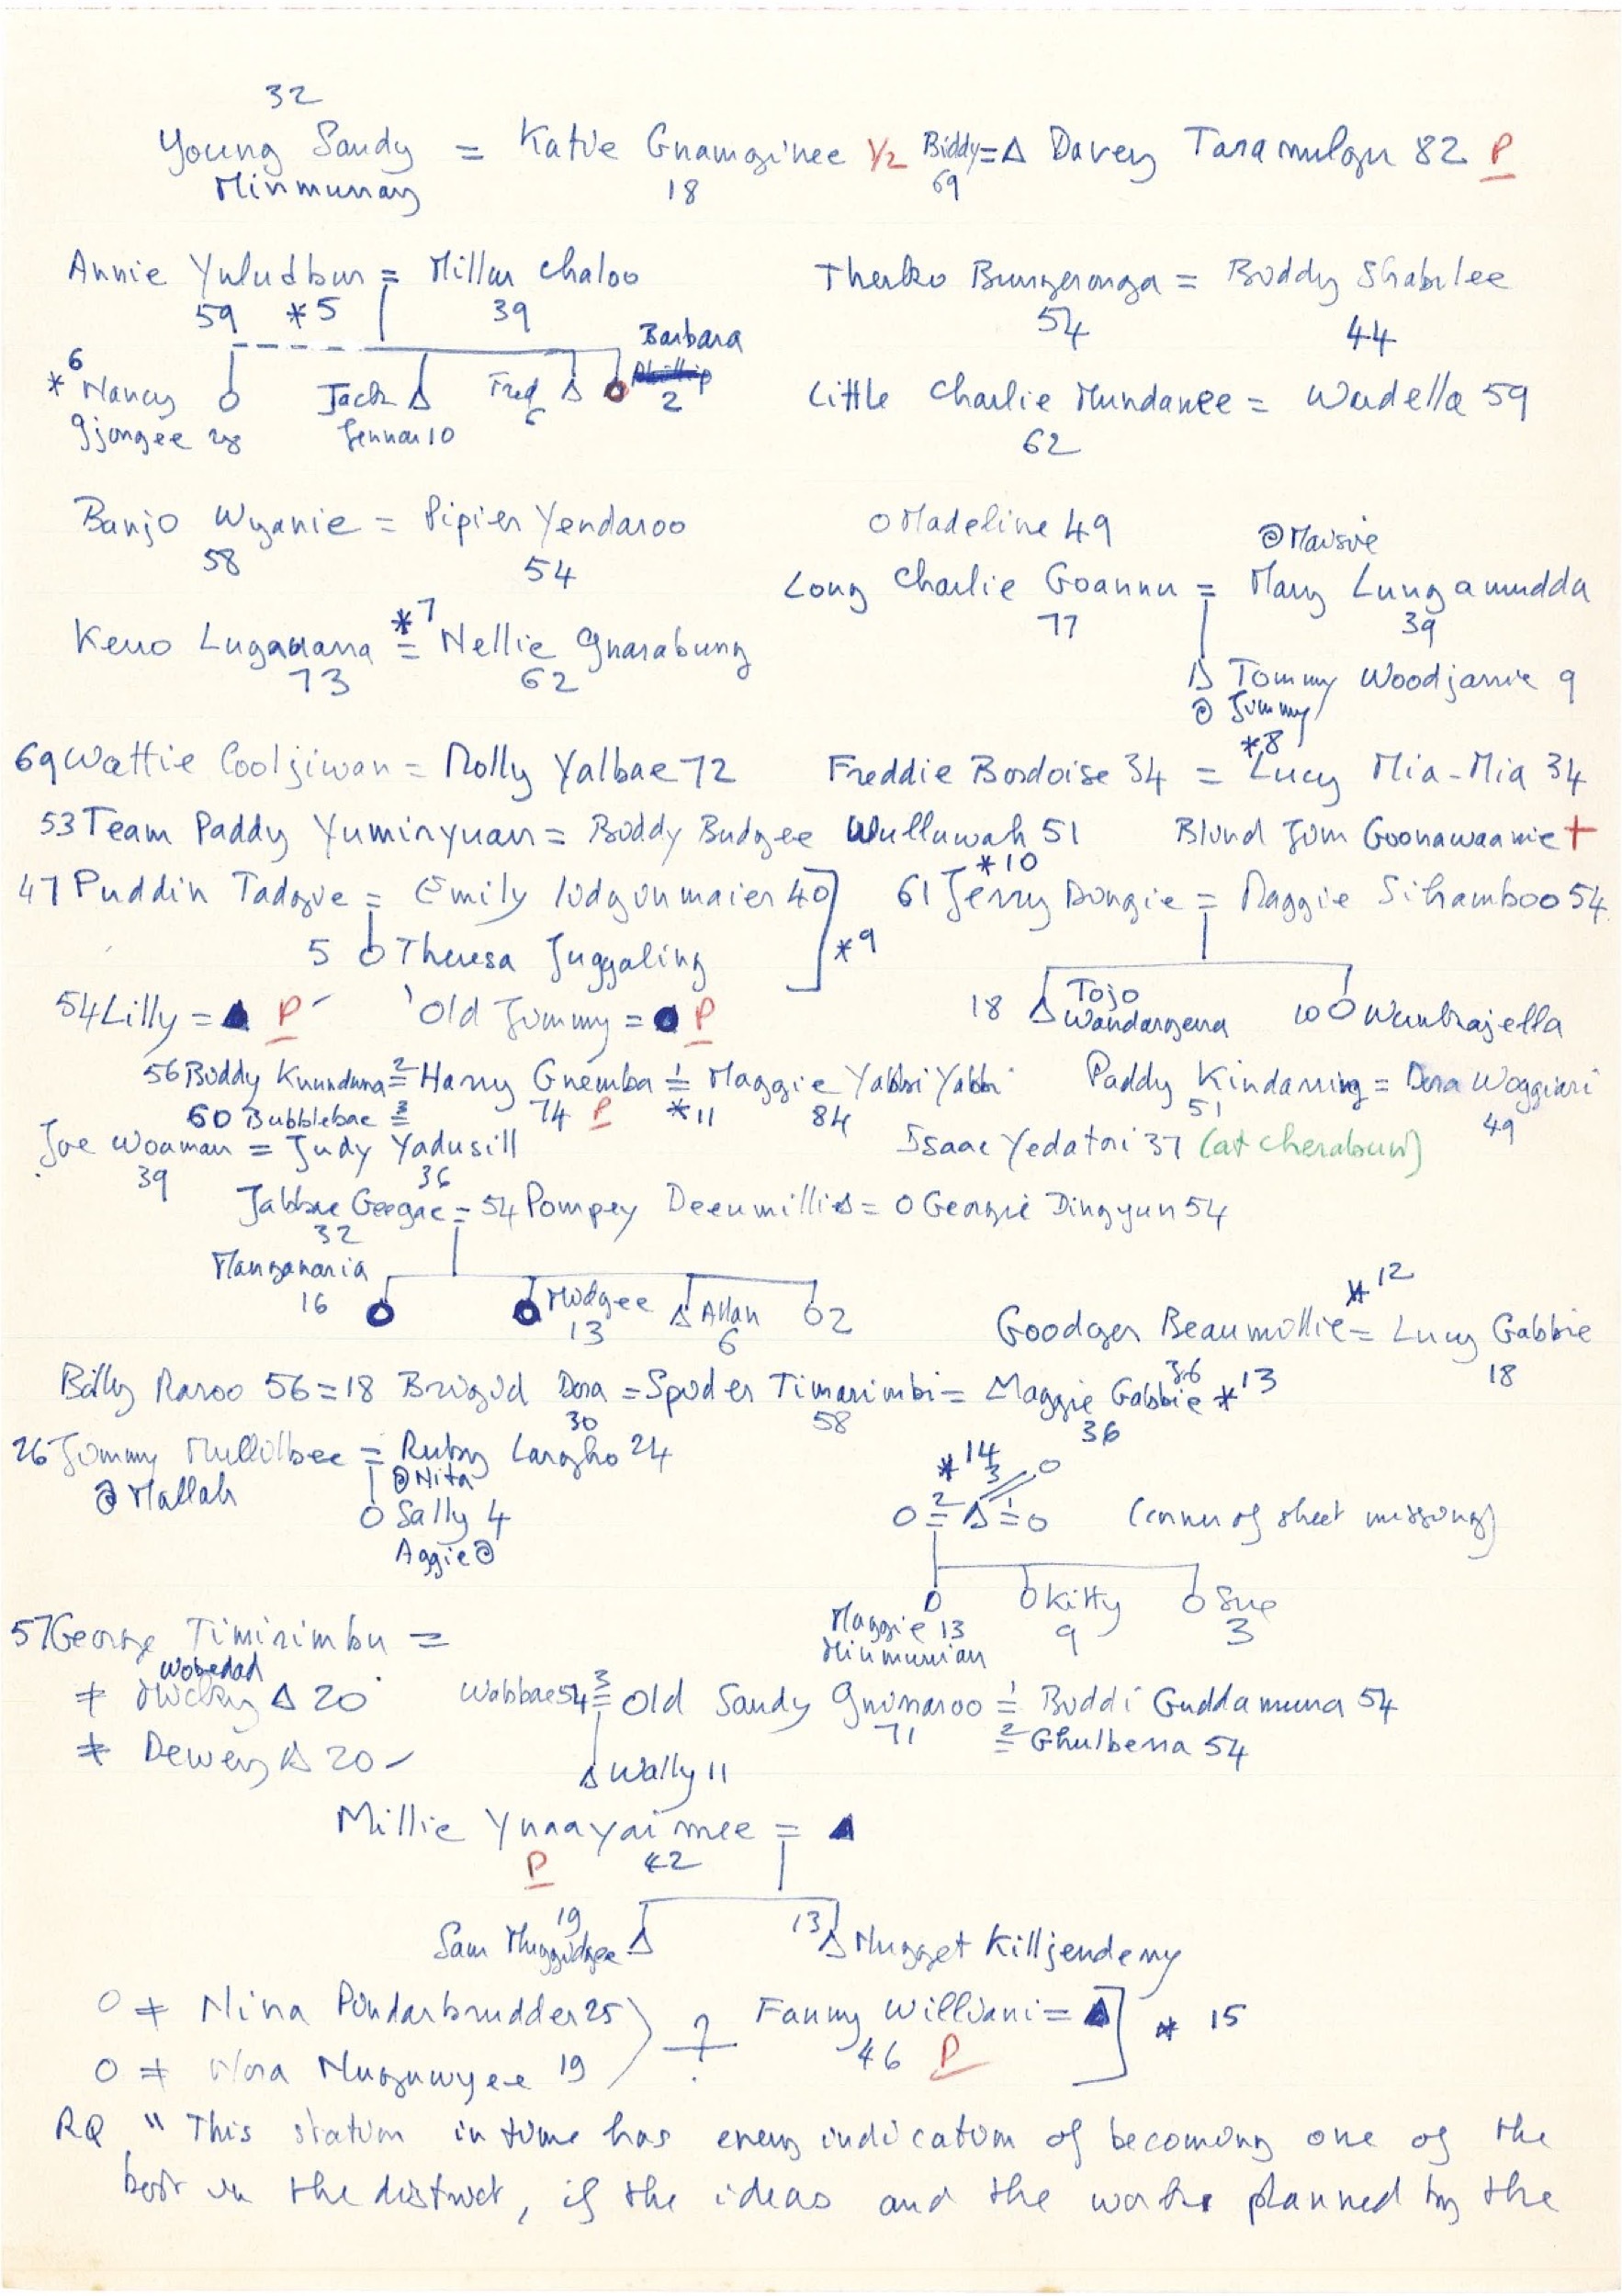 32
Young Sandy = Katie Gnamginee 1/2 Biddy = Δ Davey Taramulgu 82 P
Minmunay 18 69
Annie Yuludbur = Millar Chaloo
59 *5 39
Therko Bungeronga = Biddy Shabilee
54 44
Barbara
* 6 Nancy O Jack Δ Fred Δ O 2
Gjongee 28 Jennar 10 6
Little Charlie Mundanee = Wadella 59
62
Banjo Wyanie = Pipier Yendaroo
58 54
O Madeline 49
@ Maisie
Long Charlie Goannu = Mary Lungamudda
77 39
Keno Lugawana *7 = Nellie Gnarabung
73 62
Δ Tommy Woodjanie 9
@ Jimmy
69 Wattie Cooljiwan = Molly Yalbae 72
Freddie Bordoise 34 = *8 Lucy Mia-Mia 34
53 Team Paddy Yuminyuan = Biddy Budgee Wulluwah 51
Blind Jim Goonawaanie +
47 Puddin Tadgie = Emily Iidgunmaier 40 ] *9
5 O Theresa Juggaling
*10
61 Jerry Dingie = Maggie Sihamboo 54
18 Δ Tojo Wandangena 10 O Wunbajella
54 Lilly = ▲ P Old Jimmy = ● P
56 Biddy Kuunduna 2= Harry Gnemba 1= Maggie Yabbi Yabbi
60 Bubblebae 3= 74 P *11 84
Paddy Kindarring = Dora Woggiari
51 49
Joe Woaman = Judy Yadusill
39 36
Isaac Yedatori 37 (at Cherabun)
Jabbae Geegae = 54 Pompey Deeumillie Δ = O Georgie Dingyun 54
32
Manganaria 16 O O Midgee 13 Δ Allan 6 O 2
*12
Goodger Beaumillie = Lucy Gabbie
18
Billy Raroo 56 = 18 Brigid Dora = Spider Timarimbi = Maggie Gabbie *13
30 58 36 36
26 Jimmy Mullilbee = Ruby Largho 24
@ Mallah @ Nita
O Sally 4
Aggie @
*14
3 O
O 2= Δ 1= O (corner of sheet missing)
O O Kitty O Sue
Maggie 13 9 3
Minmunian
57 George Timirimbu =
Wobedad
≠ Micky Δ 20
≠ Dewey Δ 20
Wabbae 54 3= Old Sandy Gnimaroo 1= Biddi Guddamuna 54
71 2= Ghulbena 54
Δ Wally 11
Millie Ynaayaimee = ▲
P 42
Sam Muggidgee 19 Δ 13 Δ Nugget Killjendemy
O ≠ Nina Pindarbrudder 25 ) ?
O ≠ Nora Mugunwyee 19
Fanny Williani = ▲ ] * 15
46 P
RQ " This station in time has every indication of becoming one of the
best in the district, if the ideas and the works planned by the